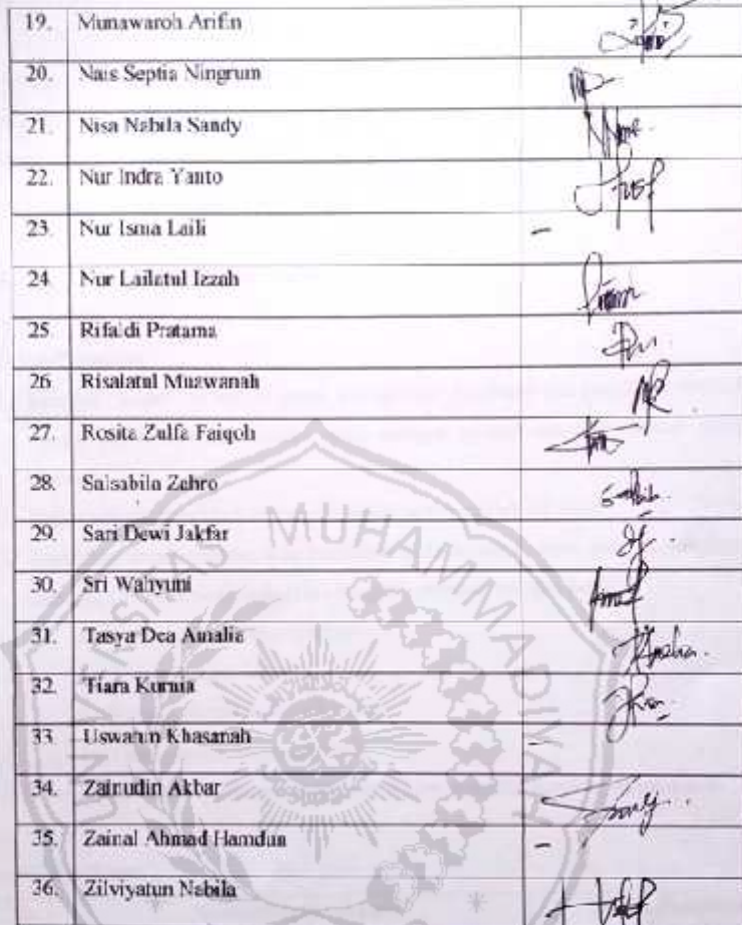 19. Munawaroh Arifin
20. Nais Septia Ningrum
21. Nisa Nabila Sandy
22. Nur Indra Yanto
23. Nur Isma Laili -
24. Nur Lailatul Izzah
25. Rifaldi Pratama
26. Risalatul Muawanah
27. Rosita Zulfa Faiqoh
28. Salsabila Zahro
29. Sari Dewi Jakfar
30. Sri Wahyuni
31. Tasya Dea Amalia
32. Tiara Kurnia
33. Uswatun Khasanah -
34. Zainudin Akbar
35. Zainal Ahmad Hamdun -
36. Zilviyatun Nabila
UNIVERSITAS MUHAMMADIYAH